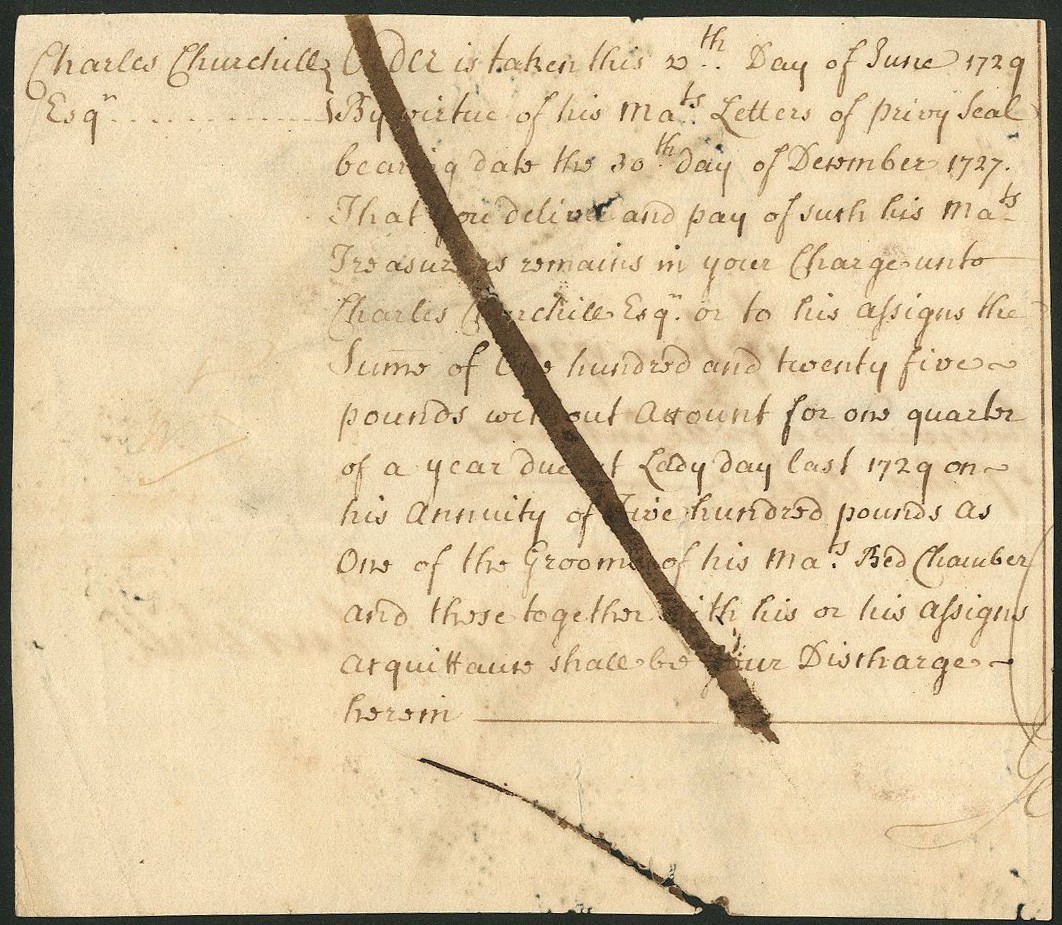 Charles Churchill Order is taken this 2th Day of June 1729
Esqr By virtue of his Mats Letters of privy Seal
bearing date the 30th day of December 1727.
That you deliver and pay of such his Mats
Treasure as remains in your Charge unto
Charles Churchill Esqr. or to his assigns the
Sume of One hundred and twenty five
pounds without Account for one quarter
of a year due at Lady day last 1729 on
his Annuity of Five hundred pounds as
One of the Grooms of his Mas. Bed Chamber
and these together with his or his assigns
acquittance shall be your Discharge
herein